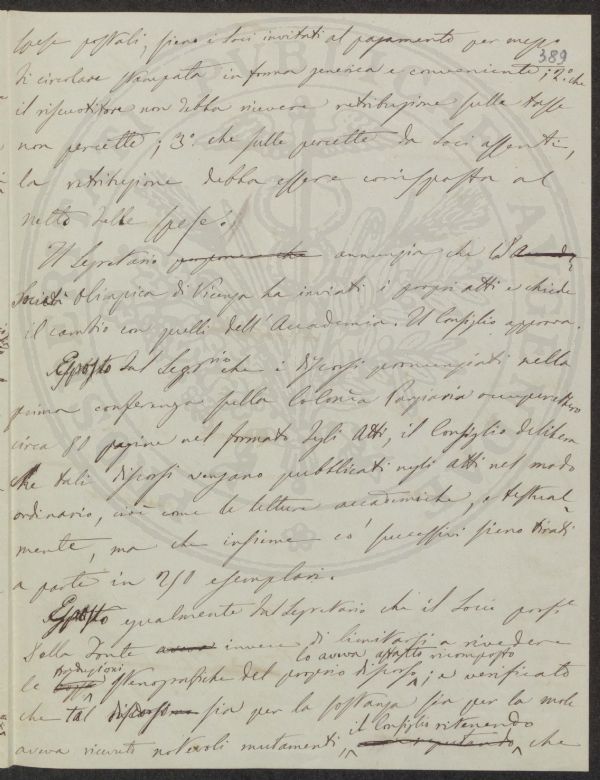 389
spese postali, sieno i soci invitati al pagamento per mezzo
di circolare stampata in forma generica e conveniente; 2.° che
il riscuotitore non debba ricevere retribuzione sulle tasse
non percette; 3.° che sulle percette da soci assenti,
la retribuzione debba essere corrisposta al
netto delle spese.
Il Segretario propone che annunzia che l'Accad
Società Olimpica di Vicenza ha inviati i propri atti e chiede
il cambio con quelli dell'Accademia. Il Consiglio approva.
Esposto dal Segrio che i discorsi pronunziati nella
prima conferenza sulla Colonìa Parziaria occuperebbero
circa 80 pagine nel formato degli Atti, il Consiglio delibera
che tali discorsi vengano pubblicati negli atti nel modo
ordinario, cioè come le letture accademiche, e testual-
mente, ma che insieme co' successivi sieno tirati
a parte in 250 esemplari.
Esposto egualmente dal Segretario che il Socio profe
Dalla Fonte aveva invece di limitarsi a rivedere
le produzioni stenografiche del proprio discorso, lo aveva affatto ricomposto; e verificato
che tal discorso sia per la sostanza sia per la mole
aveva ricevuti notevoli mutamenti, il Consiglio ritenendo che